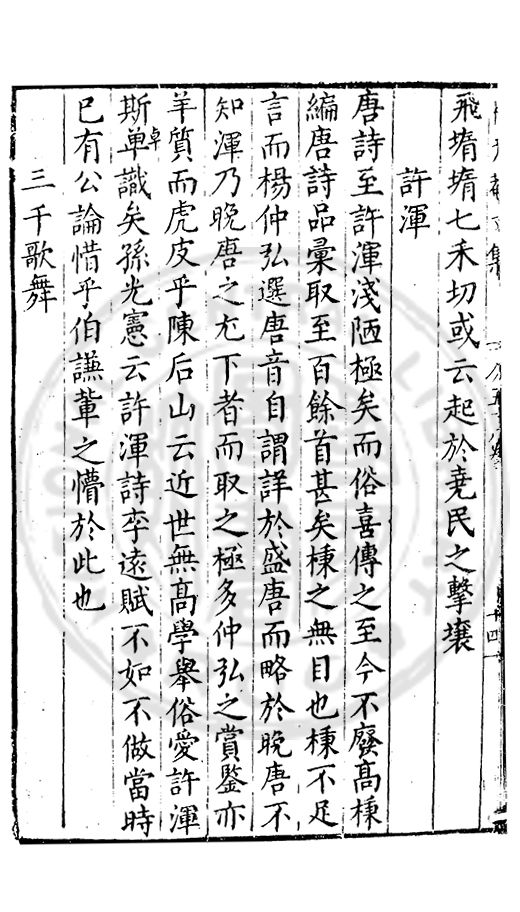 飛堶堶七禾切或云起於堯民之擊壤
許渾
唐詩至許渾淺陋極矣而俗喜傳之至今不廢高棅
編唐詩品彙取至百餘首甚矣棅之無目也棅不足
言而楊仲弘選唐音自謂詳於盛唐而略於晚唐不
知渾乃晚唐之尤下者而取之極多仲弘之賞鑒亦
羊質而虎皮乎陳后山云近世無高學舉俗愛許渾
斯卓識矣孫光憲云許渾詩李遠賦不如不做當時
已有公論惜乎伯謙輩之懵於此也
三千歌舞